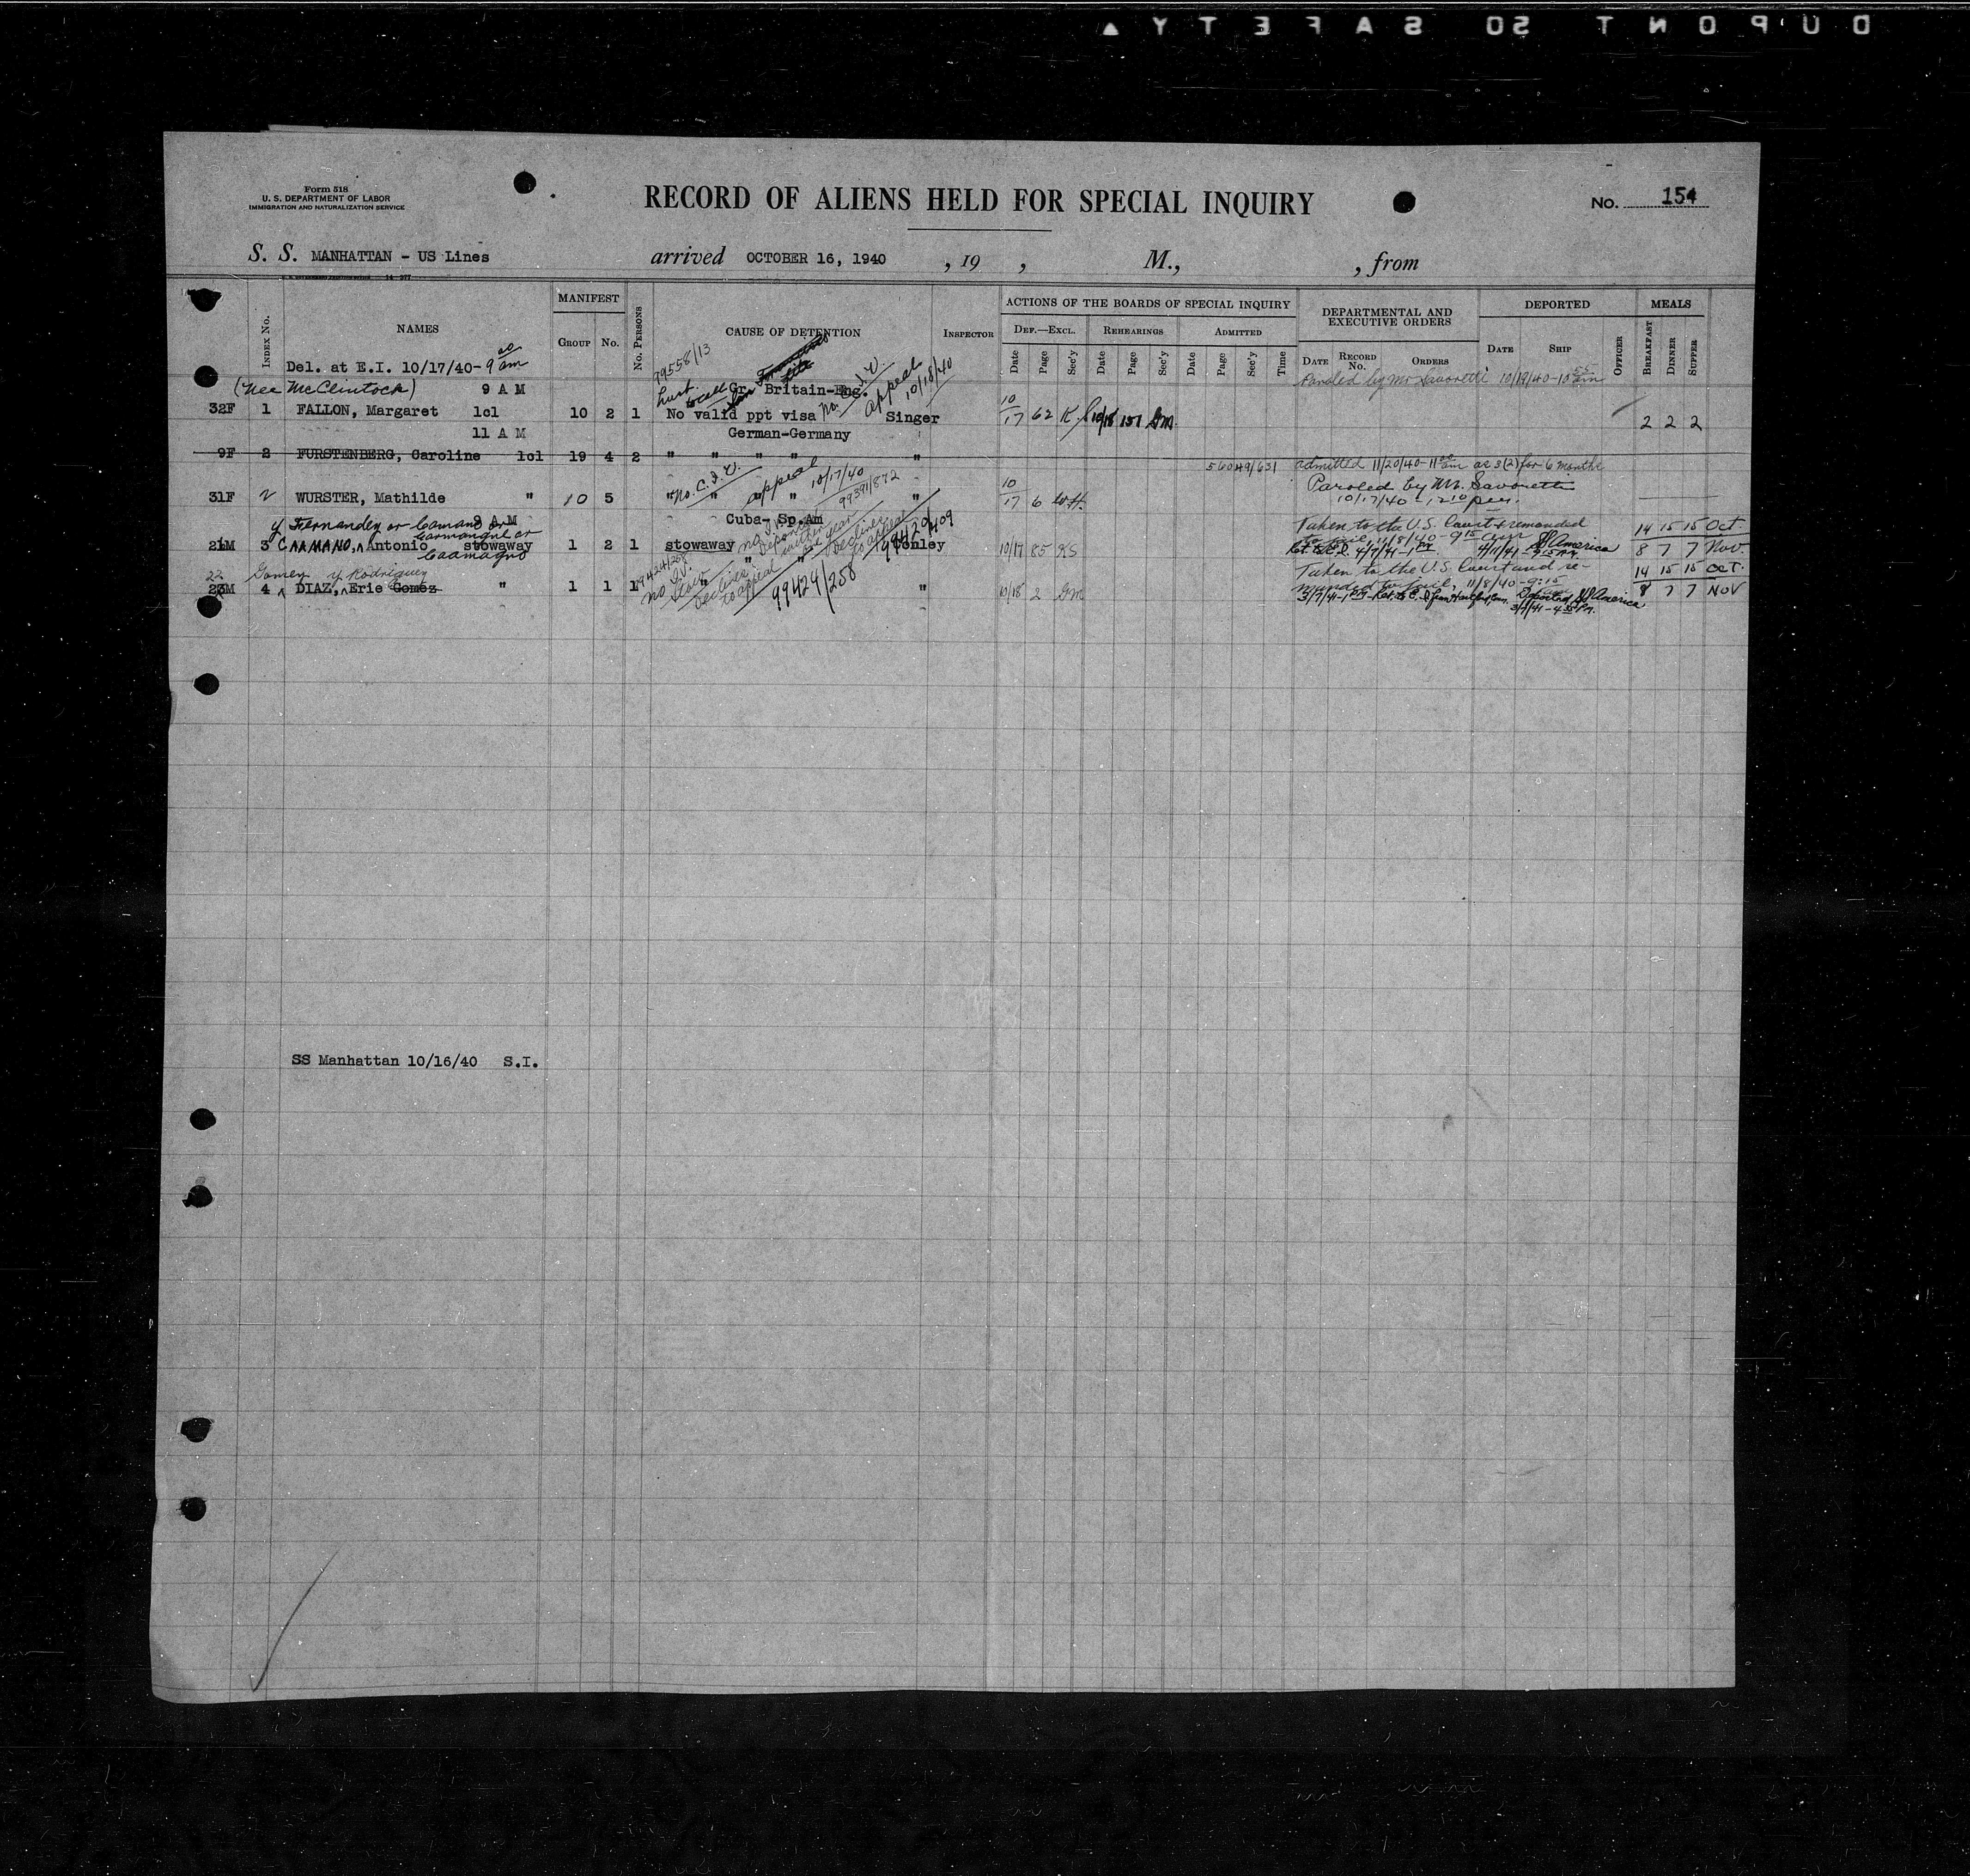 DUPONT SO SAFETY ▲
Form 518
U. S. DEPARTMENT OF LABOR
IMMIGRATION AND NATURALIZATION SERVICE
RECORD OF ALIENS HELD FOR SPECIAL INQUIRY
No. 154
S. S. MANHATTAN - US Lines arrived OCTOBER 16, 1940 , 19 , M., , from
INDEX No. NAMES MANIFEST GROUP No. No. PERSONS CAUSE OF DETENTION INSPECTOR
ACTIONS OF THE BOARDS OF SPECIAL INQUIRY
DEF.—EXCL. REHEARINGS ADMITTED
Date Page Sec'y Date Page Sec'y Date Page Sec'y Time
DEPARTMENTAL AND EXECUTIVE ORDERS
DATE RECORD No. ORDERS
DEPORTED
DATE SHIP OFFICER
MEALS
BREAKFAST DINNER SUPPER
Del. at E.I. 10/17/40- 9 00 am
99558/13
(nee McClintock) 9 A M Gr. Britain-Eng. appeal 10/18/40 Paroled by Mr Savoretti 10/19/40-10 55 am
32F 1 FALLON, Margaret lcl 10 2 1 No valid ppt visa Singer 10/17 62 K. 10/18 151 2 2 2
11 A M German-Germany
9F 2 FURSTENBERG, Caroline lcl 19 4 2 " " " " "
56049/631 admitted 11/20/40-11 00 am as 3(2) for 6 months
No. C.I.V. appeal 10/17/40 99391/872
31F 2 WURSTER, Mathilde " 10 5 " " " " " 10/17 6 W.H. Paroled by Mr. Savoretti
10/17/40 - 12 10 pm.
y Fernandez or Camano or 9 A M Cuba- Sp.Am
Caamagno
Taken to the U.S. Court & remanded
to jail, 11/8/40 - 9 15 am 14 15 15 Oct
21M 3 CAAMANO, Antonio stowaway 1 2 1 stowaway Conley 99420/409 10/17 85 KS 4/7/41-1 PM 4/11/41 SS America 8 7 7 Nov.
22 Gomez y Rodriguez
99424/258
Taken to the U.S. Court and re-
manded to jail, 11/8/40 - 9:15 14 15 15 OCT.
23M 4 DIAZ, Eric Gomez " 1 1 1 " " " 99424/258 10/18 2 3/7/41-1 PM Deported SS America 8 7 7 NOV
SS Manhattan 10/16/40 S.I.